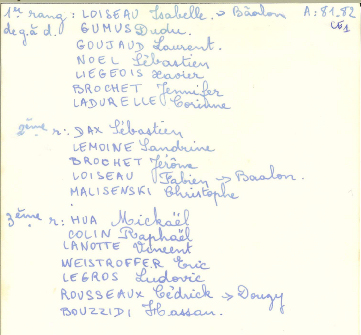 1er rang : LOISEAU Isabelle. -> Bâalon A : 81-82
de g à d. GUMUS Dudu. CE1
GOUJAUD Laurent.
NOEL Sébastien
LIEGEOIS Xavier
BROCHET Jennifer
LADURELLE Corinne
2ème r : DAX Sébastien
LEMOINE Sandrine
BROCHET Jérôme
LOISEAU Fabien -> Baalon.
MALISENSKI Christophe
3ème r : HUA Mickaël
COLIN Raphaël
LANOTTE Vincent
WEISTROFFER Eric
LEGROS Ludovic
ROUSSEAUX Cédrick -> Dougy
BOUZZIDI Hassan.